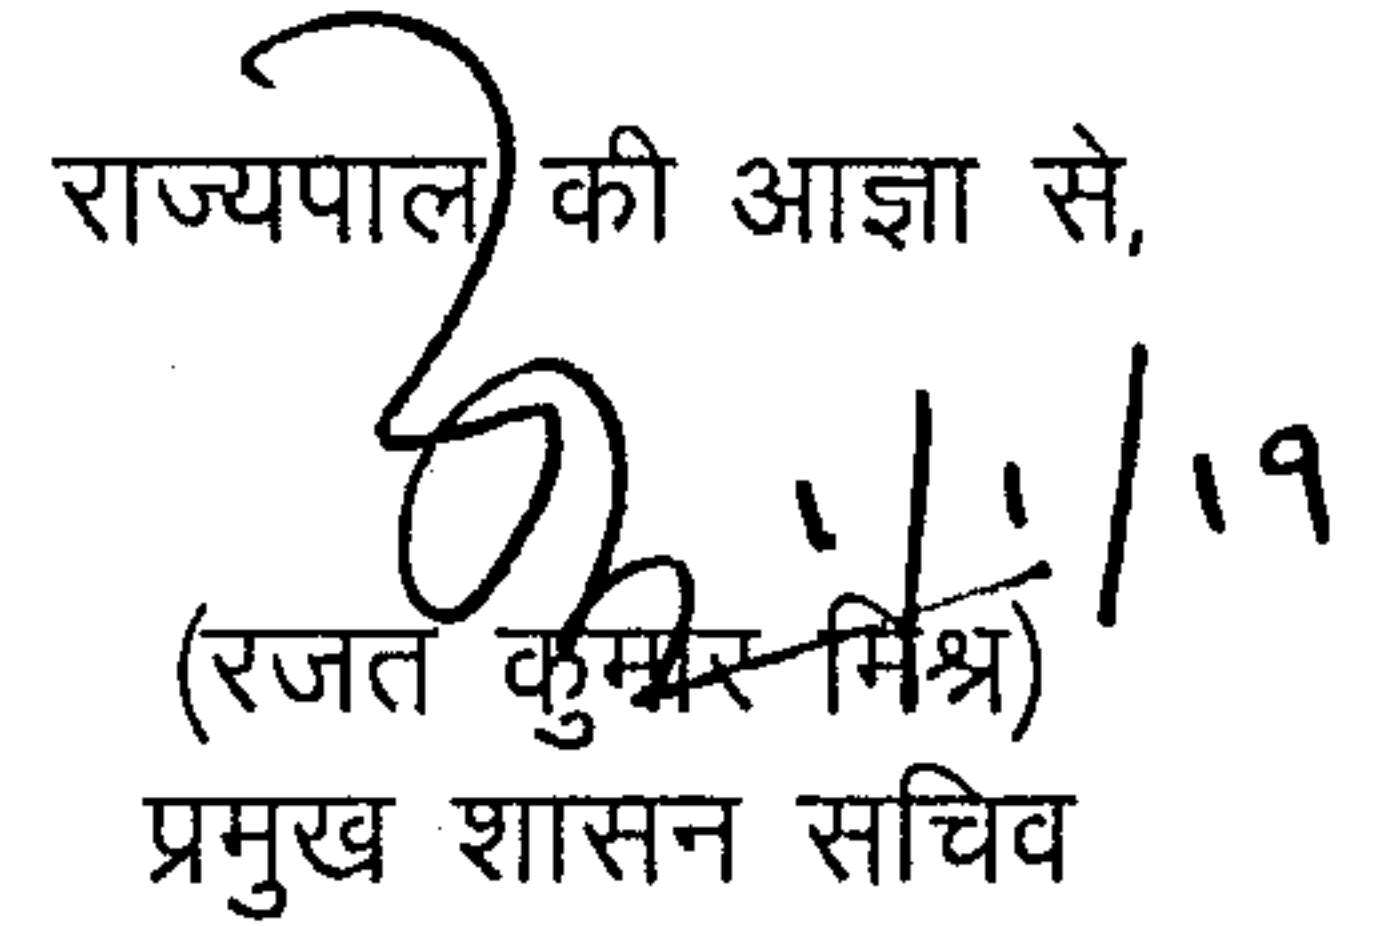 राज्यपाल की आज्ञा से,
1/1/19
(रजत कुमार मिश्र)
प्रमुख शासन सचिव